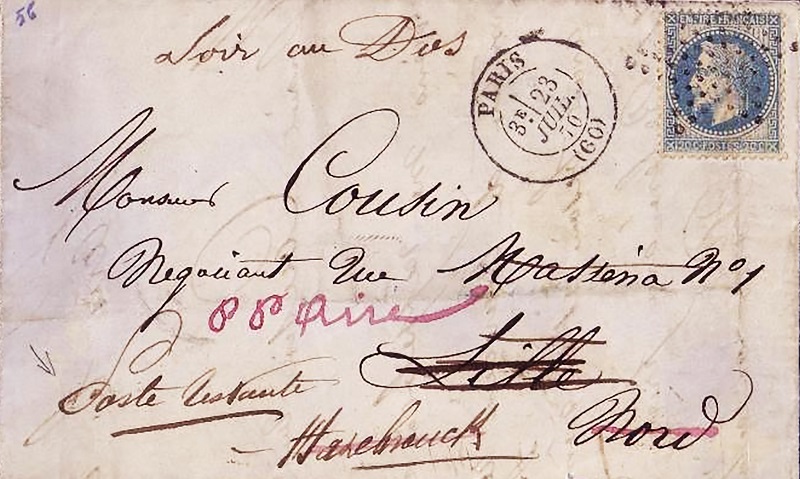 56
Voir au Dos
PARIS
3E
23
JUIL.
70
(60)
EMPIRE FRANCAIS
20C POSTES 20C
Monsieur Cousin
Negociant Rue Masséna No 1
Lille
Poste restante
Nord
Hazebrouck